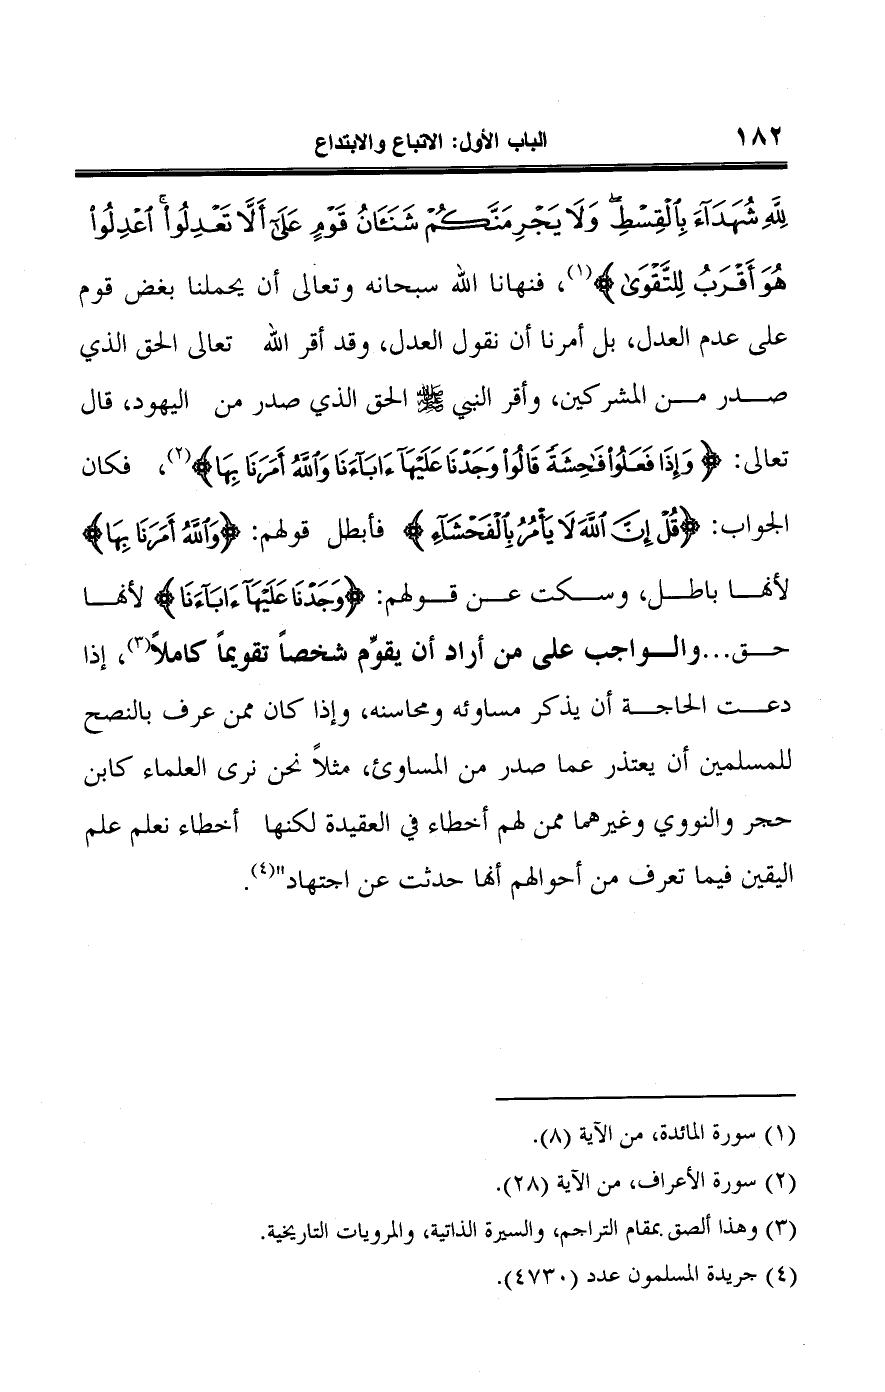 ١٨٢ الباب الأول: الاتباع والابتداع
لِلَّهِ شُهَدَآءَ بِٱلۡقِسۡطِۖ وَلَا يَجۡرِمَنَّكُمۡ شَنَـَٔانُ قَوۡمٍ عَلَىٰٓ أَلَّا تَعۡدِلُواْۚ ٱعۡدِلُواْ
هُوَ أَقۡرَبُ لِلتَّقۡوَىٰ﴾(١)، فنهانا الله سبحانه وتعالى أن يحملنا بغض قوم
على عدم العدل، بل أمرنا أن نقول العدل، وقد أقر الله تعالى الحق الذي
صدر من المشركين، وأقر النبي ﷺ الحق الذي صدر من اليهود، قال
تعالى: ﴿وَإِذَا فَعَلُواْ فَٰحِشَةٗ قَالُواْ وَجَدۡنَا عَلَيۡهَآ ءَابَآءَنَا وَٱللَّهُ أَمَرَنَا بِهَا﴾(٢)، فكان
الجواب: ﴿قُلۡ إِنَّ ٱللَّهَ لَا يَأۡمُرُ بِٱلۡفَحۡشَآءِ﴾ فأبطل قولهم: ﴿وَٱللَّهُ أَمَرَنَا بِهَا﴾
لأنها باطل، وسكت عن قولهم: ﴿وَجَدۡنَا عَلَيۡهَآ ءَابَآءَنَا﴾ لأنها
حق...والواجب على من أراد أن يقوّم شخصاً تقويماً كاملاً(٣)، إذا
دعت الحاجة أن يذكر مساوئه ومحاسنه، وإذا كان ممن عرف بالنصح
للمسلمين أن يعتذر عما صدر من المساوئ، مثلاً نحن نرى العلماء كابن
حجر والنووي وغيرهما ممن لهم أخطاء في العقيدة لكنها أخطاء نعلم علم
اليقين فيما تعرف من أحوالهم أنها حدثت عن اجتهاد"(٤).
(١) سورة المائدة، من الآية (٨).
(٢) سورة الأعراف، من الآية (٢٨).
(٣) وهذا ألصق بمقام التراجم، والسيرة الذاتية، والمرويات التاريخية.
(٤) جريدة المسلمون عدد (٤٧٣٠).